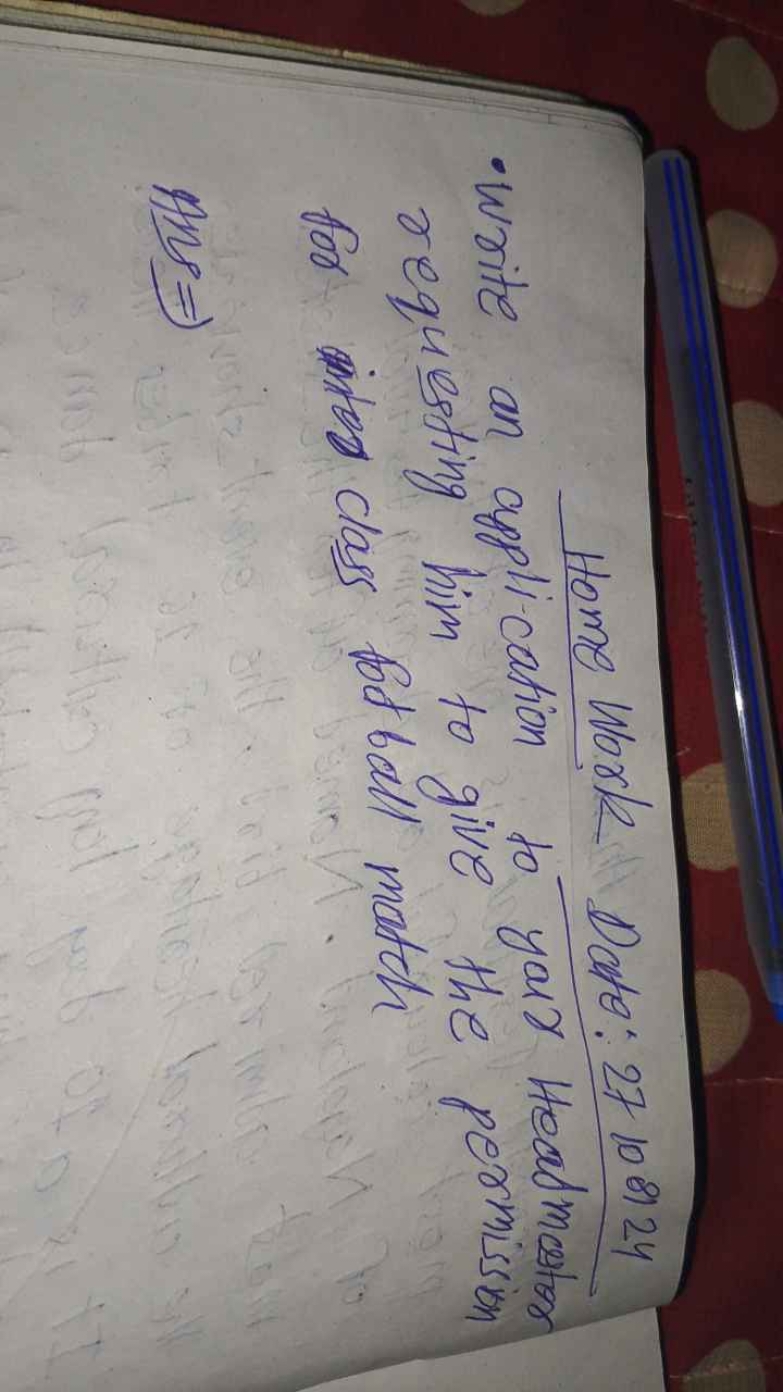 Home Work Date: 27/08/24
• Write an application to your Headmaster
requesting him to give the permission
for inter class football match
Ans ⇒